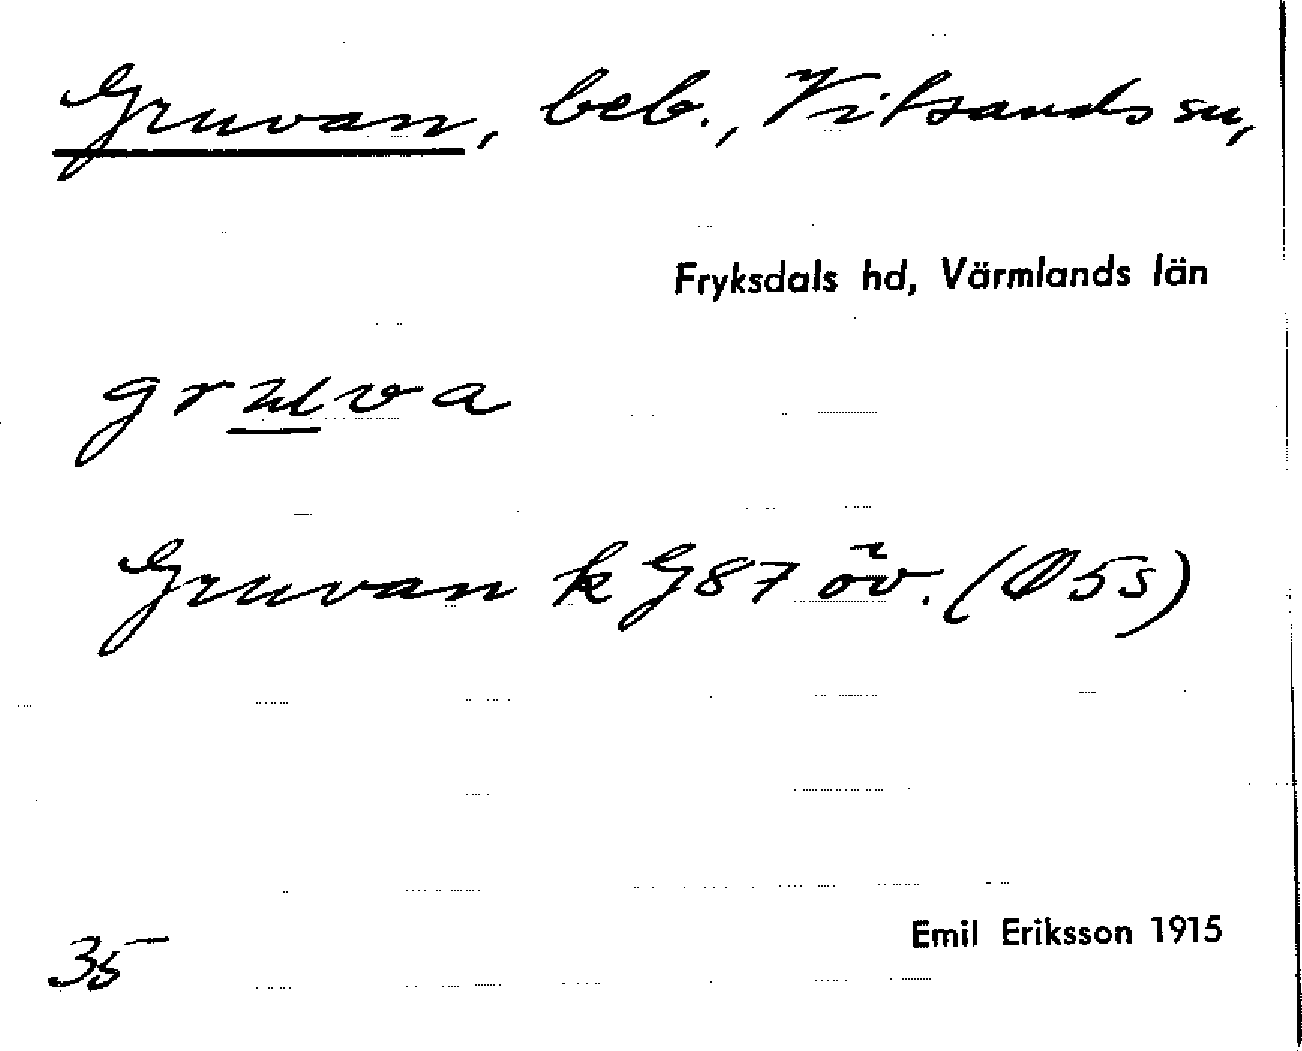 Gruvan, beb., Vitsands sn,
Fryksdals hd, Värmlands län
gruva
Gruvan k G87 öv. (Ø5s)
Emil Eriksson 1915
35